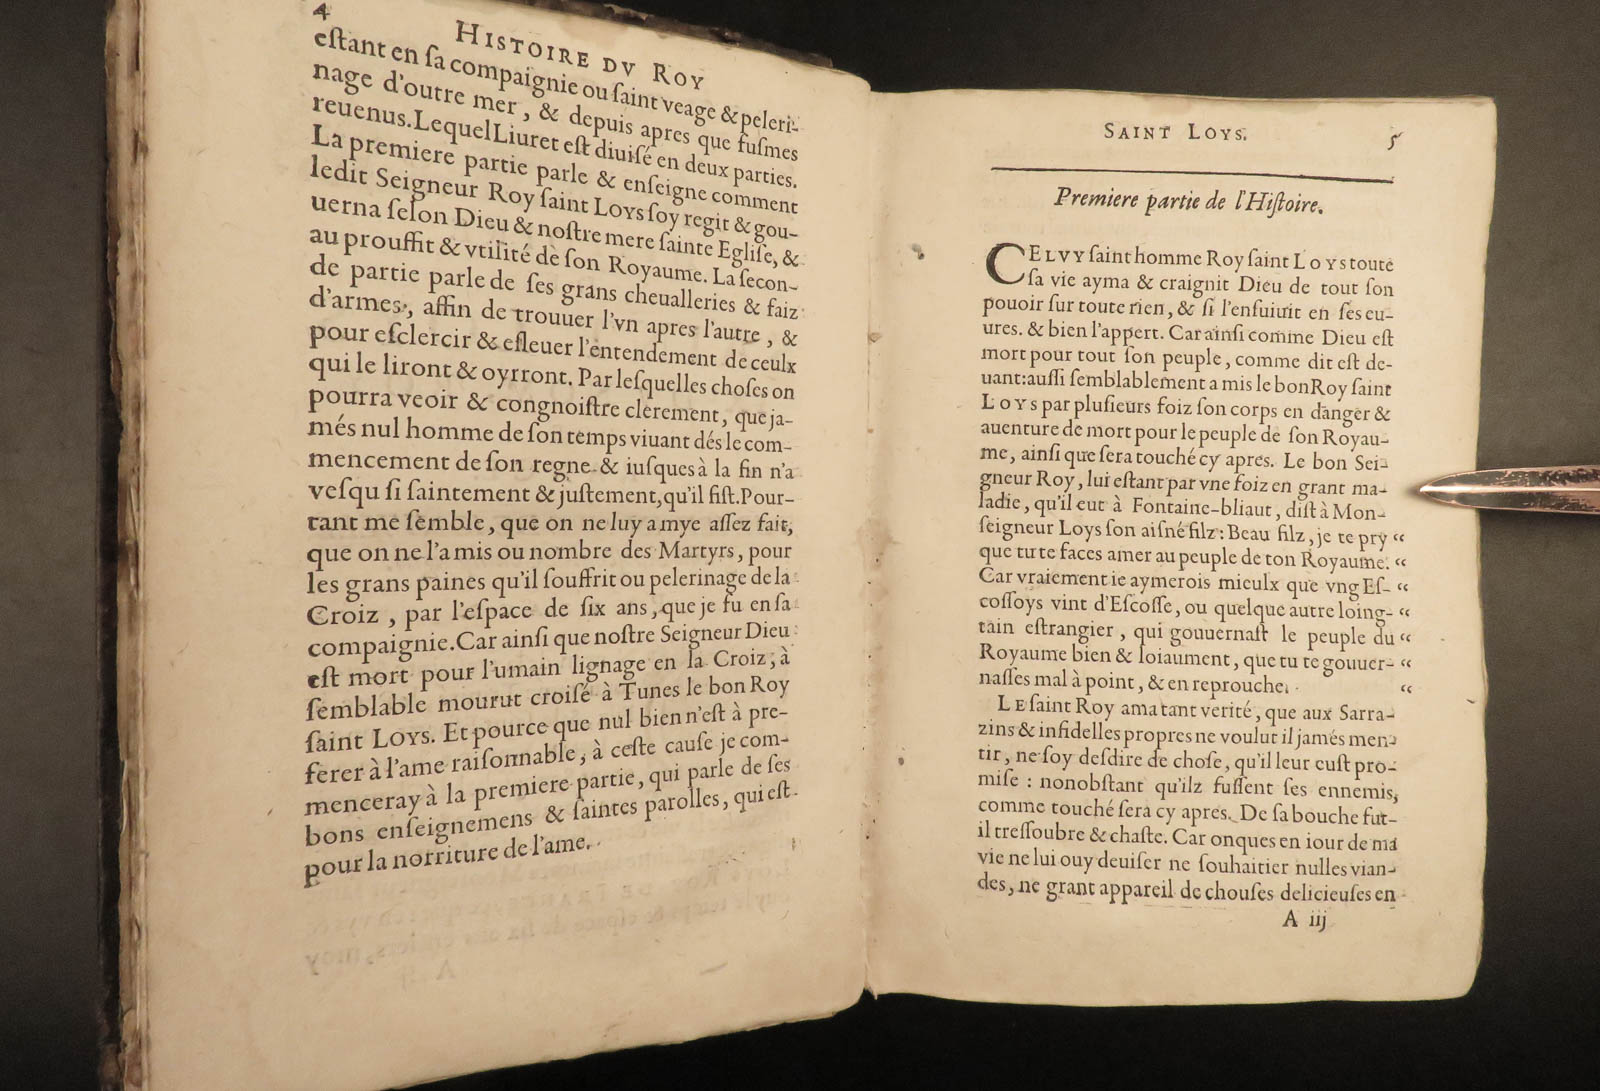 4
HISTOIRE DV ROY
eſtant en ſa compaignie ou ſaint veage & peleri-
nage d'outre mer, & depuis apres que fuſmes
reuenus. Lequel Liuret eſt diuiſé en deux parties.
La premiere partie parle & enſeigne comment
ledit Seigneur Roy ſaint LOYS ſoy regit & gou-
uerna ſelon Dieu & noſtre mere ſainte Egliſe, &
au prouffit & vtilité de ſon Royaume. La ſecon-
de partie parle de ſes grans cheualleries & faiz
d'armes, affin de trouuer l'vn apres l'autre, &
pour eſclercir & eſleuer l'entendement de ceulx
qui le liront & oyrront. Par leſquelles choſes on
pourra veoir & congnoiſtre clerement, que ja-
més nul homme de ſon temps viuant dés le com-
mencement de ſon regne & iuſques à la fin n'a
veſqu ſi ſaintement & juſtement, qu'il fiſt. Pour-
tant me ſemble, que on ne luy a mye aſſez fait,
que on ne l'a mis ou nombre des Martyrs, pour
les grans paines qu'il ſouffrit ou pelerinage de la
Croiz, par l'eſpace de ſix ans, que je fu en ſa
compaignie. Car ainſi que noſtre Seigneur Dieu
eſt mort pour l'umain lignage en la Croiz, à
ſemblable mourut croiſé à Tunes le bon Roy
ſaint LOYS. Et pource que nul bien n'eſt à pre-
ferer à l'ame raiſonnable, à ceſte cauſe je com-
menceray à la premiere partie, qui parle de ſes
bons enſeignemens & ſaintes parolles, qui eſt
pour la norriture de l'ame.
SAINT LOYS. 5
Premiere partie de l'Hiſtoire.
CELVY ſaint homme Roy ſaint LOYS toute
ſa vie ayma & craignit Dieu de tout ſon
pouoir ſur toute rien, & ſi l'enſuiuit en ſes eu-
ures. & bien l'appert. Car ainſi comme Dieu eſt
mort pour tout ſon peuple, comme dit eſt de-
uant: auſſi ſemblablement a mis le bon Roy ſaint
LOYS par pluſieurs foiz ſon corps en danger &
auenture de mort pour le peuple de ſon Royau-
me, ainſi que ſera touché cy apres. Le bon Sei-
gneur Roy, lui eſtant par vne foiz en grant ma-
ladie, qu'il eut à Fontaine-bliaut, diſt à Mon-
ſeigneur Loys ſon aiſné filz: Beau filz, je te pry “
que tu te faces amer au peuple de ton Royaume. “
Car vraiement ie aymerois mieulx que vng Eſ- “
coſſoys vint d'Eſcoſſe, ou quelque autre loing- “
tain eſtrangier, qui gouuernaſt le peuple du “
Royaume bien & loiaument, que tu te gouuer- “
naſſes mal à point, & en reprouche. “
LE ſaint Roy ama tant verité, que aux Sarra-
zins & infidelles propres ne voulut il jamés men-
tir, ne ſoy deſdire de choſe, qu'il leur euſt pro-
miſe : nonobſtant qu'ilz fuſſent ſes ennemis,
comme touché ſera cy apres. De ſa bouche fut-
il treſſoubre & chaſte. Car onques en iour de ma
vie ne lui ouy deuiſer ne ſouhaitier nulles vian-
des, ne grant appareil de chouſes delicieuſes en
A iij